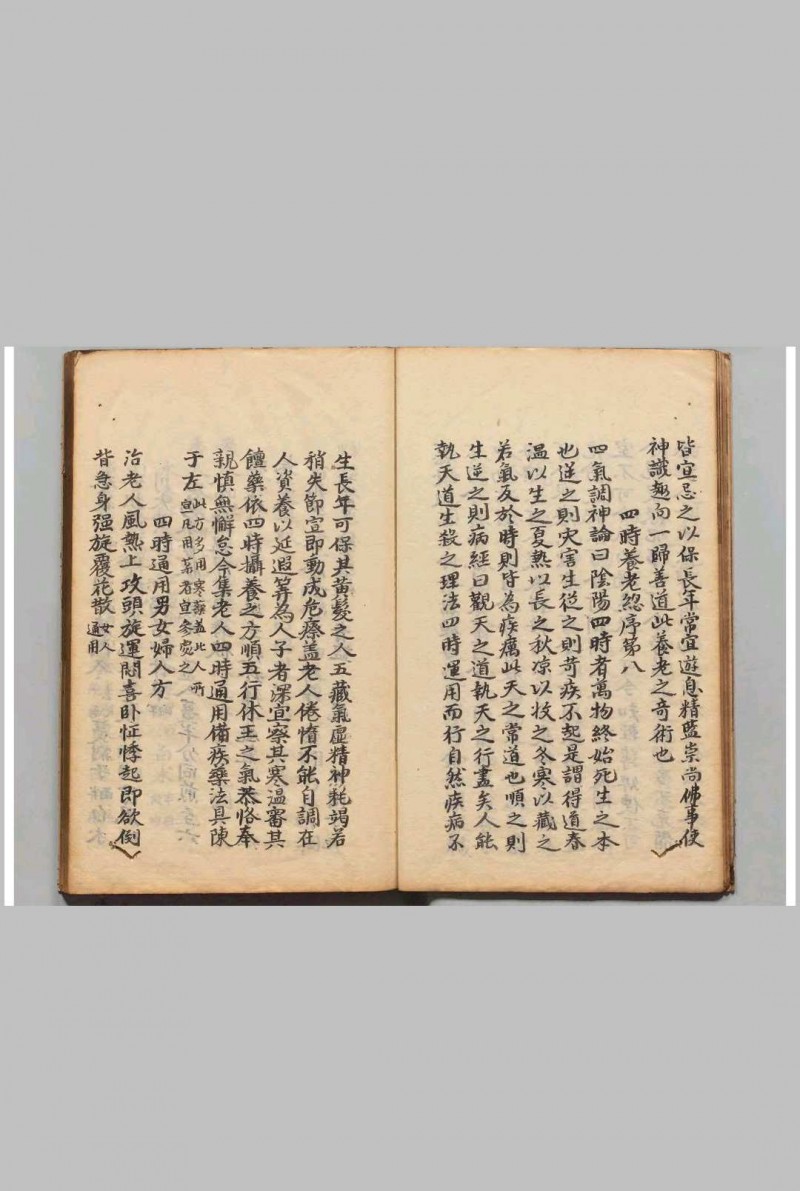 皆宜忌之以保長年常宜遊息精藍崇尚佛事使
神識趣向一歸善道此養老之奇術也
四時養老惣序第八
四氣調神論曰陰陽四時者萬物終始死生之本
也逆之則灾害生從之則苛疾不起是謂得道春
温以生之夏熱以長之秋凉以收之冬寒以藏之
若氣反於時則皆為疾癘此天之常道也順之則
生逆之則病經曰觀天之道執天之行盡矣人能
執天道生殺之理法四時運用而行自然疾病不
生長年可保其黄髮之人五藏氣虚精神耗竭若
稍失節宣即動成危瘵盖老人倦惰不能自調在
人資養以延遐筭為人子者深宜察其寒温審其
饘藥依四時攝養之方順五行休王之氣恭恪奉
親慎無懈怠今集老人四時通用備疾藥法具陳
于左此方多用寒藥盖北人所
宜凡用藥者宜参處之
四時通用男女婦人方
治老人風熱上攻頭旋運悶喜卧怔悸起即欲倒
背急身强旋覆花散女人
通用